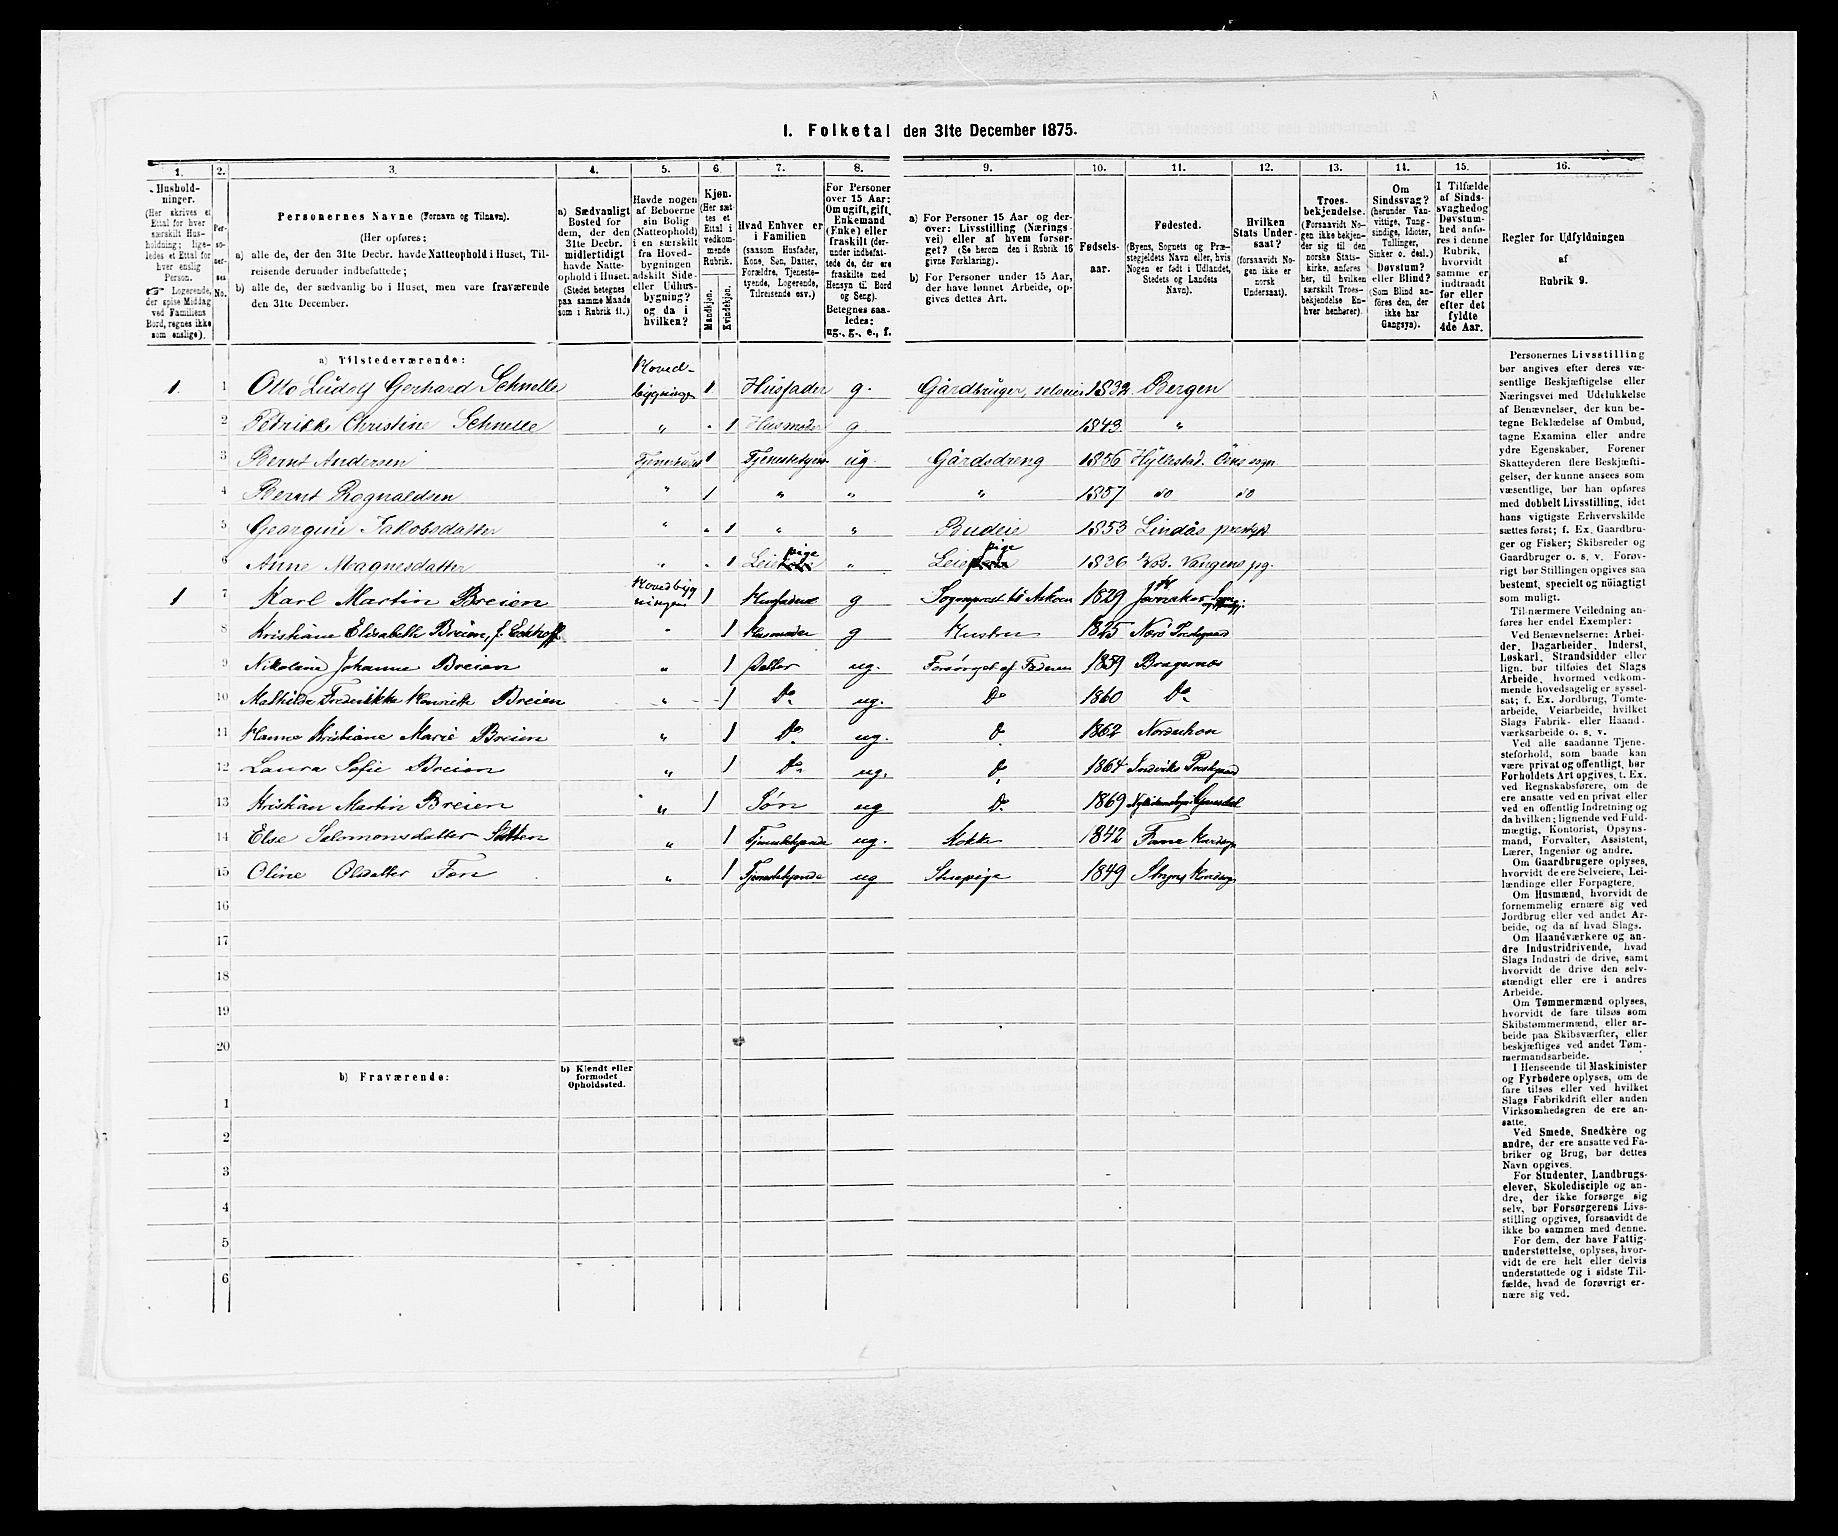 1. Folketal den 31te December 1875.
1. 2. 3. 4. 5. 6. 7. 8. 9. 10. 11. 12. 13. 14. 15. 16.
Hushold-
ninger.
(Her skrives et
Ettal for hver
særskilt Hus-
holdning; lige-
ledes et Ettal for
hver enslig
Person.
☞ Logerende,
der spise Middag
ved Familiens
Bord, regnes ikke
som enslige).
Per-
so-
ner-
nes
No.
Personernes Navne (Fornavn og Tilnavn).
(Her opføres:
a) alle de, der den 31te Decbr. havde Natteophold i Huset, Til-
reisende derunder indbefattede;
b) alle de, der sædvanlig bo i Huset, men vare fraværende
den 31te December.
a) Sædvanligt
Bosted for
dem, der den
31te Decbr.
midlertidigt
havde Natte-
ophold i Huset.
(Stedet betegnes
paa samme Maade
som i Rubrik 11.)
Havde nogen
af Beboerne
sin Bolig
(Natteophold)
i en særskilt
fra Hoved-
bygningen
adskilt Side-
eller Udhus-
bygning?
og da i
hvilken?
Kjøn.
(Her sæt-
tes et
Ettal i
vedkom-
mende
Rubrik.
Mandkjøn.
Kvindekjøn.
Hvad Enhver er
i Familien
(saasom Husfader,
Kone, Søn, Datter,
Forældre, Tjeneste-
tyende, Logerende,
Tilreisende osv.)
For Personer
over 15 Aar:
Om ugift, gift,
Enkemand
(Enke) eller
fraskilt (der-
under indbefat-
tede de, der ere
fraskilte med
Hensyn til Bord
og Seng).
Betegnes saa-
ledes:
ug., g., e., f.
a) For Personer 15 Aar og der-
over: Livsstilling (Nærings-
vei) eller af hvem forsør-
get? (Se herom den i Rubrik 16
givne Forklaring).
b) For Personer under 15 Aar,
der have lønnet Arbeide, op-
gives dettes Art.
Fødsels-
aar.
Fødested.
(Byens, Sognets og Præ-
stegjeldets Navn eller, hvis
Nogen er født i Udlandet,
Stedets og Landets
Navn).
Hvilken
Stats Under-
saat?
(forsaavidt No-
gen ikke er
norsk
Undersaat).
Troes-
bekjendelse.
(Forsaavidt No-
gen ikke bekjen-
der sig til den
norske Stats-
kirke, anføres
her, til hvilken
særskilt Troes-
bekjendelse En-
hver henhører).
Om
Sindssvag?
(herunder Van-
vittige, Tung-
sindige, Idioter,
Tullinger,
Sinker o. desl.)
Døvstum?
eller Blind?
(Som Blind an-
føres den, der
ikke har
Gangsyn).
I Tilfælde
af Sinds-
svaghed og
Døvstum-
hed anfø-
res i denne
Rubrik,
hvorvidt
samme er
indtraadt
før eller
efter det
fyldte
4de Aar.
Regler for Udfyldningen
af
Rubrik 9.
a) Tilstedeværende:
1. 1 Otto Ludolf Gerhard Schnelle Hoved-bygningen 1 Husfader g. Gårdbruger, selveier 1832 Bergen
2 Petrikke Christine Schnelle " 1 Husmoder g 1843 "
3 Bernt Andersen 1 Tjenestetyen ug. Gårdsdreng 1856 Hyllestad
4 Bernt Rognaldsen " 1 " " " 1857 do do
5 Georgine Jakobsdatter " 1 " " Budeie 1853 Lindås
6 Anne Magnesdatter " 1 Leiepige " Leiepige 1836 Vos. Vangens pg.
1 7 Karl Martin Breien Hovedbyg-ningen 1 Husfader g Sogneprest til Askvoll 1829 Jevnaker
8 Kristiane Elisabeth Breien, f. Eckhoff " 1 Husmoder g Hustru 1825 Næs Prestegaard
9 Nikoline Johanne Breien " 1 Datter ug. Forsørget af Faderen 1859 Bragernæs
10 Mathilde Frederikke Henriette Breien " 1 Do ug. Do 1860 Do
11 Hanna Kristiane Marie Breien " 1 Do ug. Do 1862 Norderhov
12 Laura Sofie Breien " 1 Do ug. Do 1864 Indviks Prestegaard
13 Kristian Martin Breien " 1 Søn ug Do 1869
14 Else Salomonsdatter " 1 Tjenestetyende ug. Kokke 1842
15 Oline Olsdatter " 1 Tjenestetyende ug Stuepige 1849
16
17
18
19
20
b) Fraværende:
b) Kjendt eller
formodet
Opholdssted.
1
2
3
4
5
6
Personernes Livsstilling
bør angives efter deres væ-
sentlige Beskjæftigelse eller
Næringsvei med Udelukkelse
af Benævnelser, der kun be-
tegne Beklædelse af Ombud,
tagne Examina eller andre
ydre Egenskaber. Forener
Skatteyderen flere Beskjæfti-
gelser, der kunne ansees som
væsentlige, bør han opføres
med dobbelt Livsstilling, idet
hans vigtigste Erhvervskilde
sættes først; f. Ex. Gaardbru-
ger og Fisker; Skibsreder og
Gaardbruger o. s. v. Forøv-
rigt bør Stillingen opgives saa
bestemt, specielt og nøiagtigt
som muligt.
Til nærmere Veiledning an-
føres her endel Exempler:
Ved Benævnelserne: Arbei-
der, Dagarbeider, Inderst,
Løskarl, Strandsidder eller
lign. bør tilføies det Slags
Arbeide, hvormed vedkom-
mende hovedsagelig er syssel-
sat; f. Ex. Jordbrug, Tomte-
arbeide, Veiarbeide, hvilket
Slags Fabrik- eller Haand-
værksarbeide o. s. v.
Ved alle saadanne Tjene-
steforhold, som baade kan
være privat og offentligt, bør
Forholdets Art opgives, t. Ex.
ved Regnskabsførere, om de
ere ansatte ved en privat eller
ved en offentlig Indretning og
da hvilken; lignende ved Fuld-
mægtig, Kontorist, Opsyns-
mand, Forvalter, Assistent,
Lærer, Ingeniør og andre.
Om Gaardbrugere oplyses,
hvorvidt de ere Selveiere, Lei-
lændinge eller Forpagtere.
Om Husmænd, hvorvidt de
fornemmelig ernære sig ved
Jordbrug eller ved andet Ar-
beide, og da af hvad Slags.
Om Haandværkere og an-
dre Industridrivende, hvad
Slags Industri de drive, samt
hvorvidt de drive den selv-
stændigt eller ere i andres
Arbeide.
Om Tømmermænd oplyses,
hvorvidt de fare tilsøs som
Skibstømmermænd, eller ar-
beide paa Skibsværfter, eller
beskjæftiges ved andet Tøm-
mermandsarbeide.
I Henseende til Maskinister
og Fyrbødere oplyses, om de
fare tilsøs eller ved hvilket
Slags Fabrikdrift eller anden
Virksomhedsgren de ere an-
satte.
Ved Smede, Snedkere og
andre, der ere ansatte ved Fa-
briker og Brug, bør dettes
Navn opgives.
For Studenter, Landbrugs-
elever, Skoledisciple og an-
dre, der ikke forsørge sig
selv, bør Forsørgerens Livs-
stilling opgives, forsaavidt de
ikke bo sammen med denne.
For dem, der have Fattig-
understøttelse, oplyses, hvor-
vidt de ere helt eller delvis
understøttede og i sidste Til-
fælde, hvad de forøvrigt er-
nære sig ved.